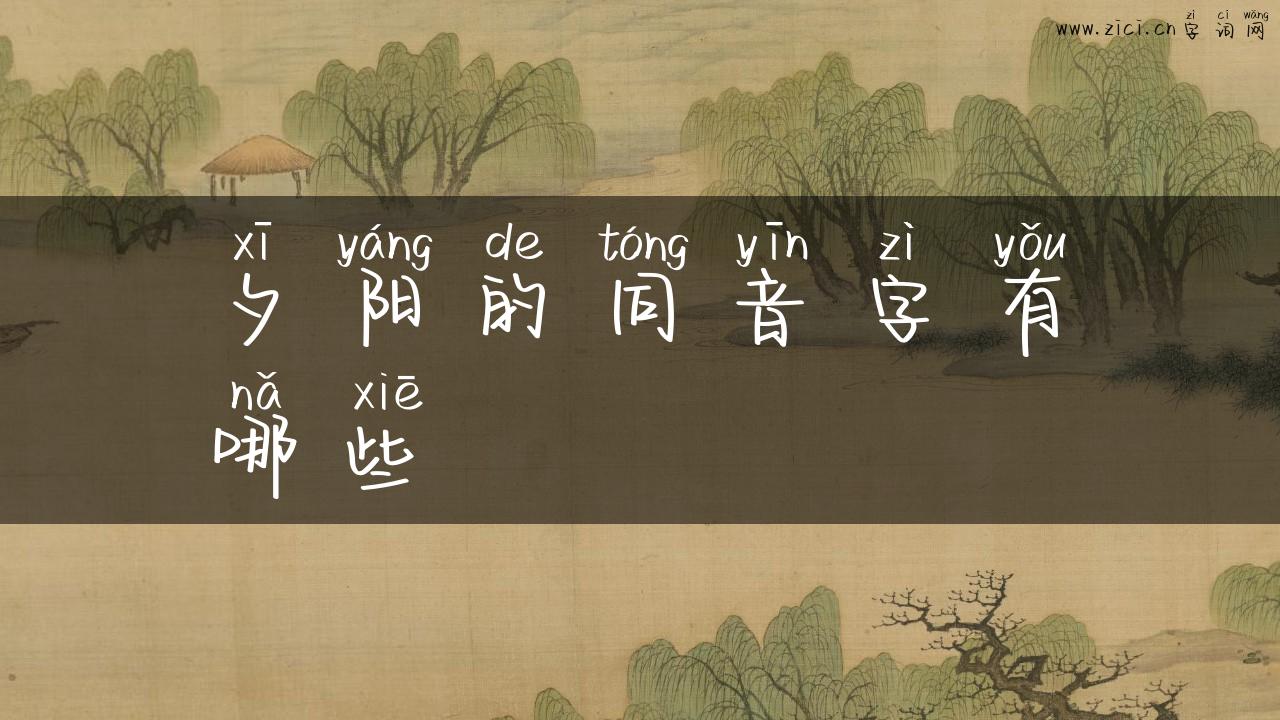 zì cí wǎng
www.zici.cn 字词网
xī yáng de tóng yīn zì yǒu
夕阳的同音字有
nǎ xiē
哪些